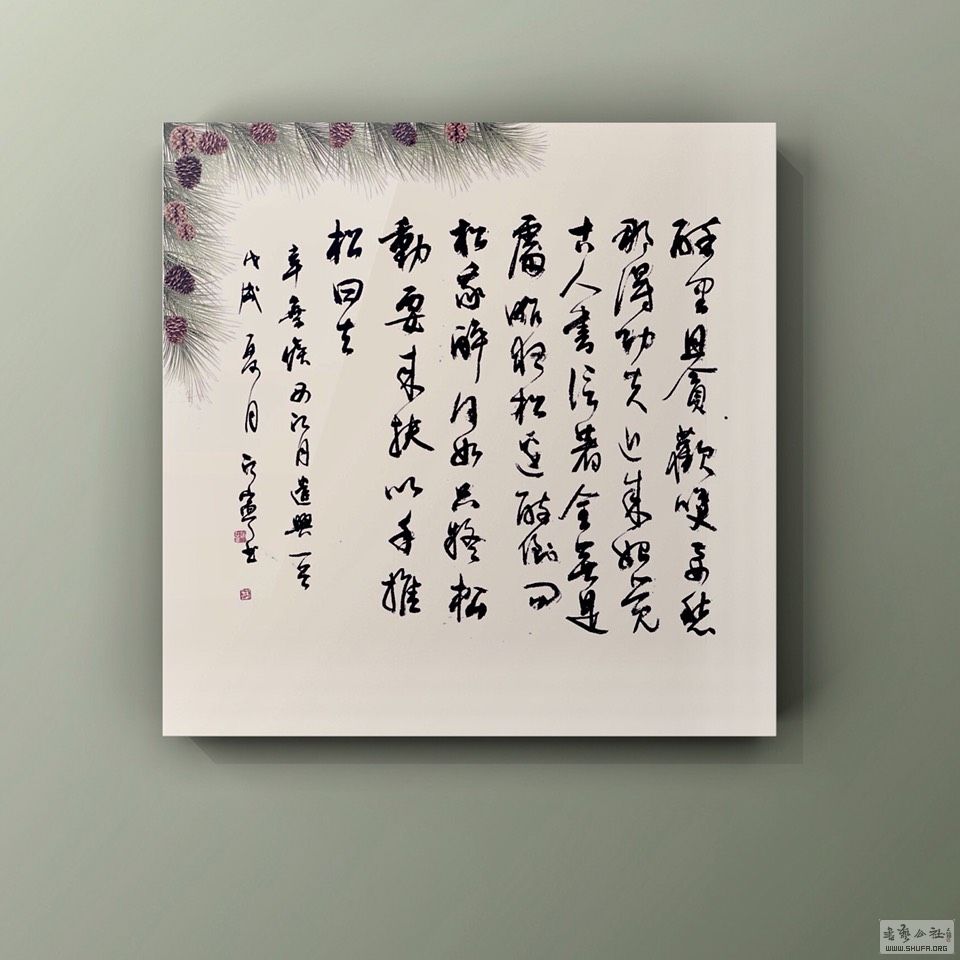 醉里且貪歡咲要愁
那得功夫近来始覺
古人書信著全無是
處昨夜松邊醉倒问
松我醉何如只疑松
動要来扶以手推
松曰去
辛棄疾西江月遣興一首
戊戌夏月 书
WWW.SHUFA.ORG